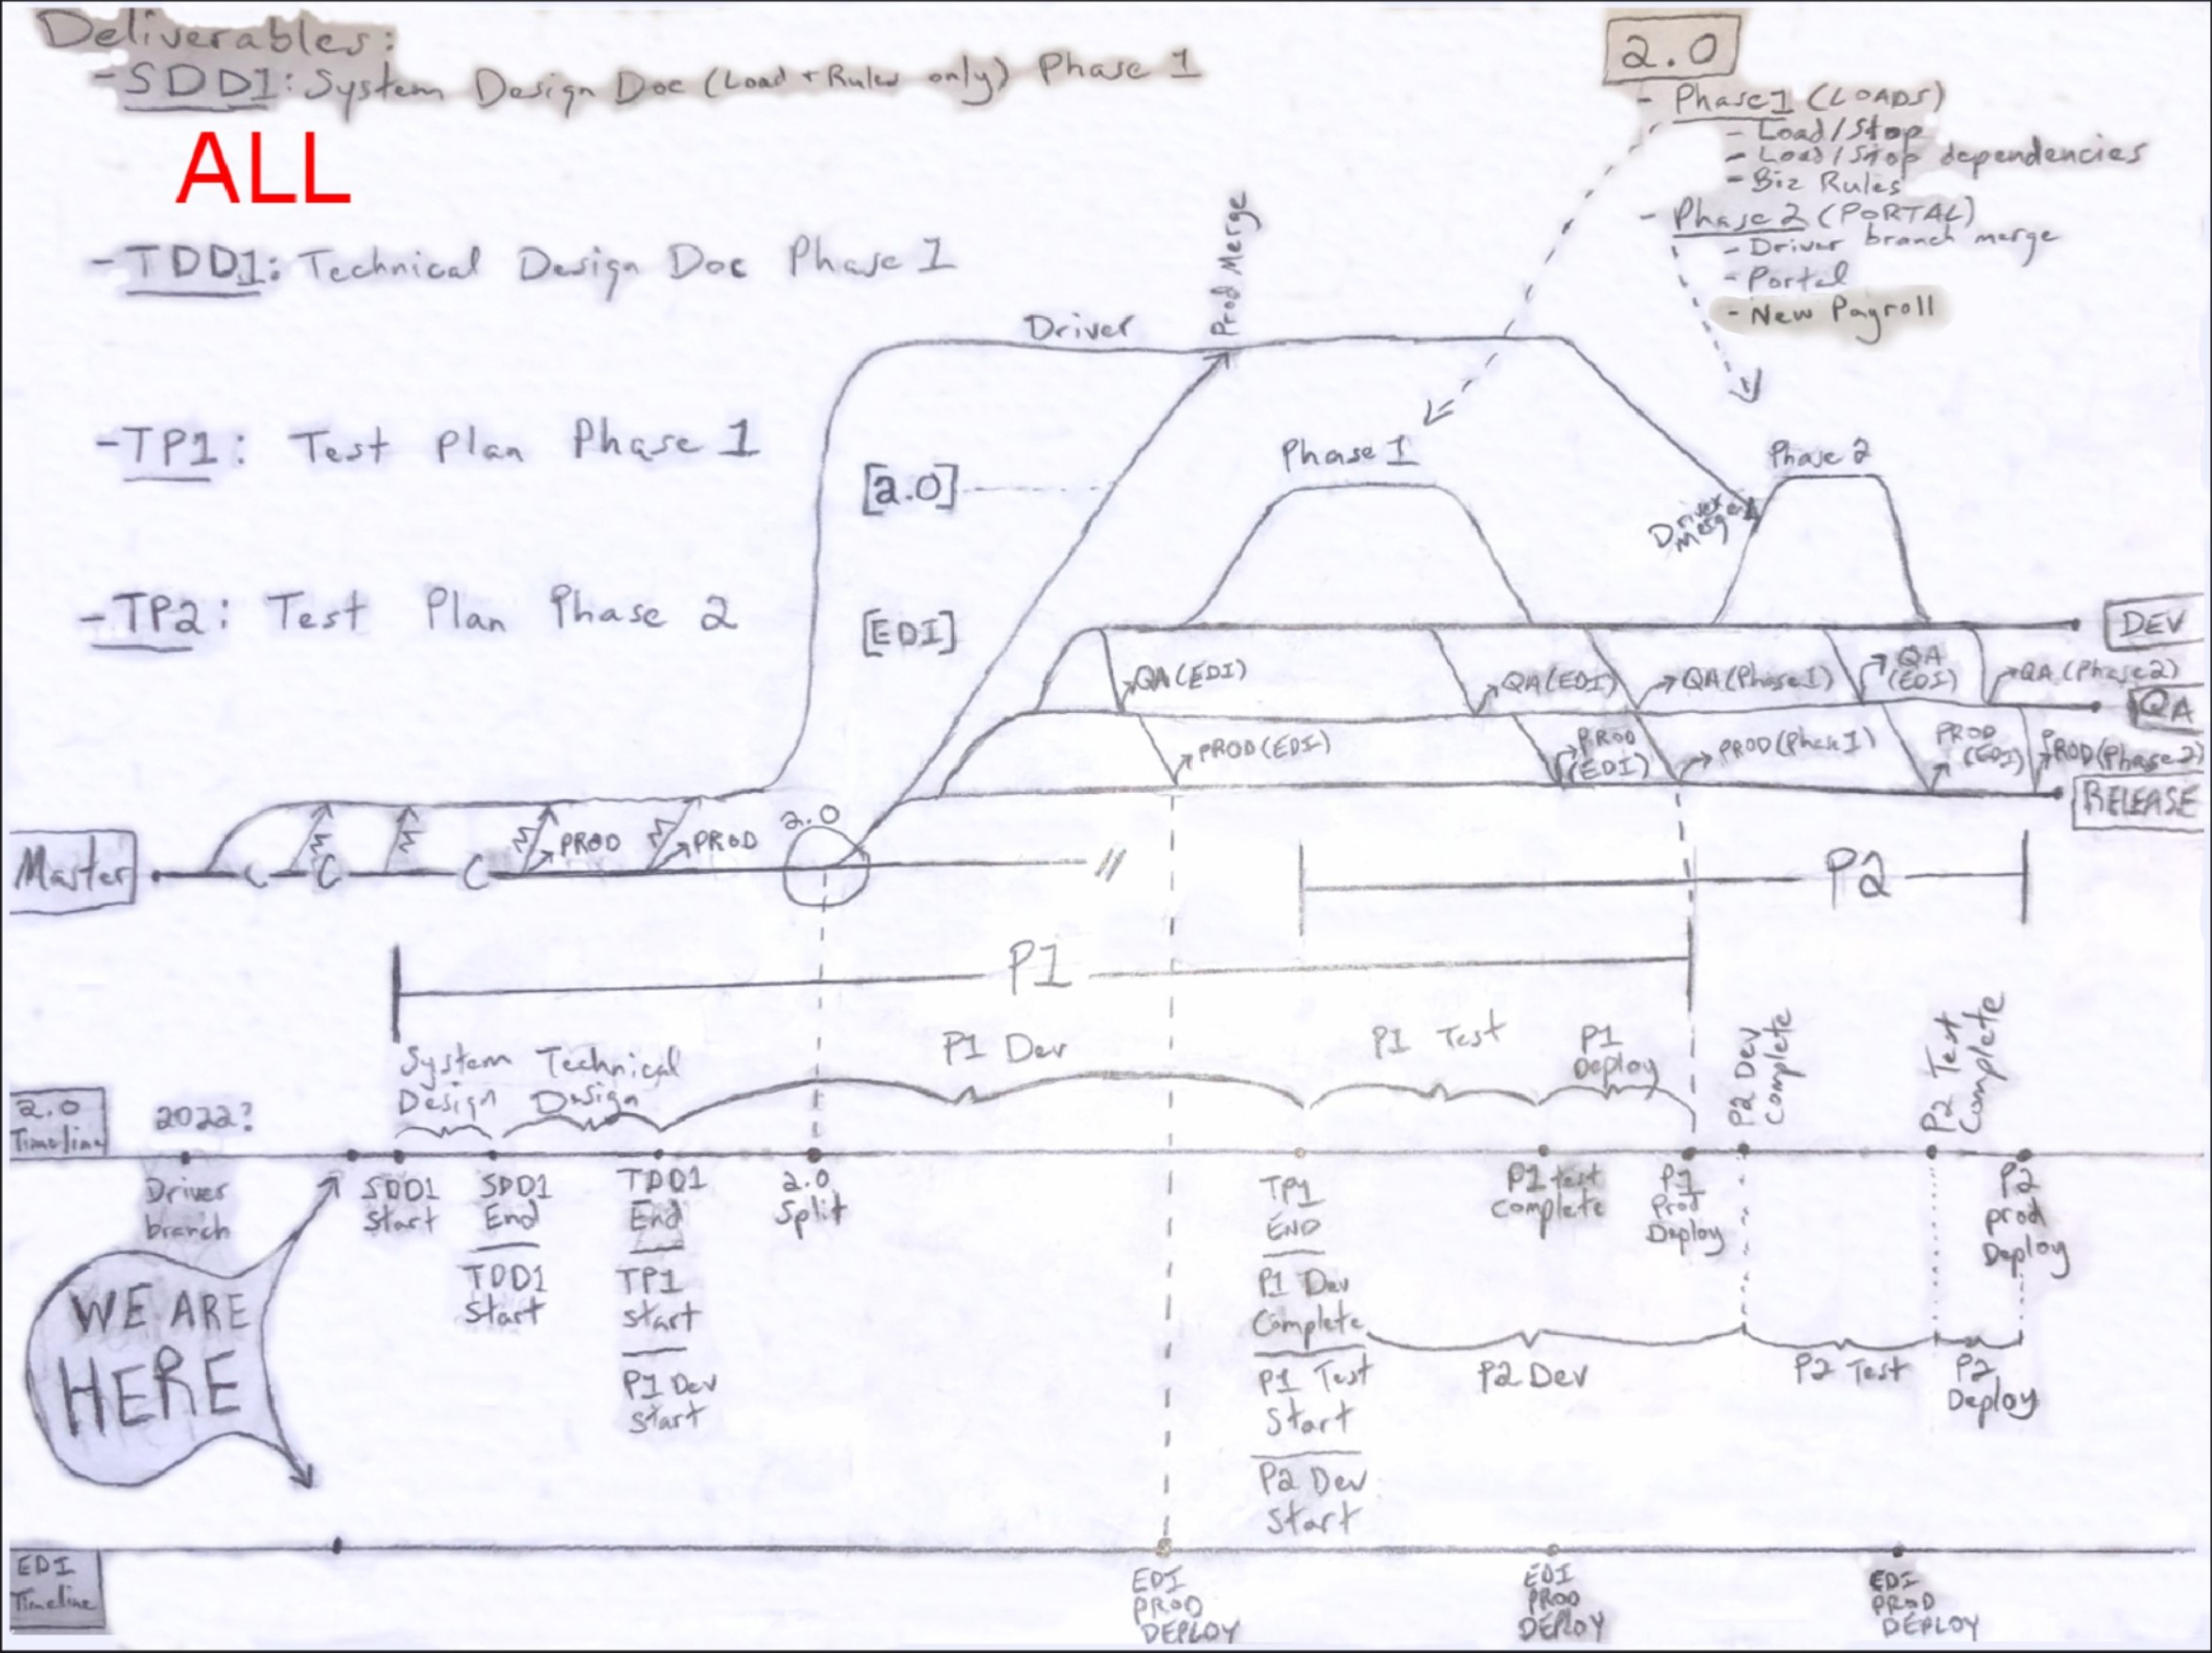 Deliverables:
- SDD1: System Design Doc (Load + Rules only) Phase 1
ALL
- TDD1: Technical Design Doc Phase 1
- TP1: Test Plan Phase 1
- TP2: Test Plan Phase 2
2.0
- Phase 1 (LOADS)
- Load/Stop
- Load/Stop dependencies
- Biz Rules
- Phase 2 (PORTAL)
- Driver branch merge
- Portal
- New Payroll
Driver
Prod Merge
[2.0]
[EDI]
Phase 1
Phase 2
Driver
Merge
DEV
QA (EDI)
QA (EDI)
QA (Phase 1)
QA
(EDI)
QA (Phase 2)
QA
PROD (EDI)
PROD
(EDI)
PROD (Phase 1)
PROD
(EDI)
PROD (Phase 2)
RELEASE
Master
PROD
PROD
2.0
P2
P1
System
Design
Technical
Design
P1 Dev
P1 Test
P1
Deploy
P2 Dev
Complete
P2 Test
Complete
2.0
Timeline
2022?
Driver
branch
SDD1
Start
SDD1
End
TDD1
Start
TDD1
End
TP1
Start
P1 Dev
Start
2.0
Split
TP1
END
P1 Dev
Complete
P1 Test
Start
P2 Dev
Start
P1 test
complete
P1
Prod
Deploy
P2
prod
Deploy
WE ARE
HERE
P2 Dev
P2 Test
P2
Deploy
EDI
Timeline
EDI
PROD
DEPLOY
EDI
PROD
DEPLOY
EDI
PROD
DEPLOY